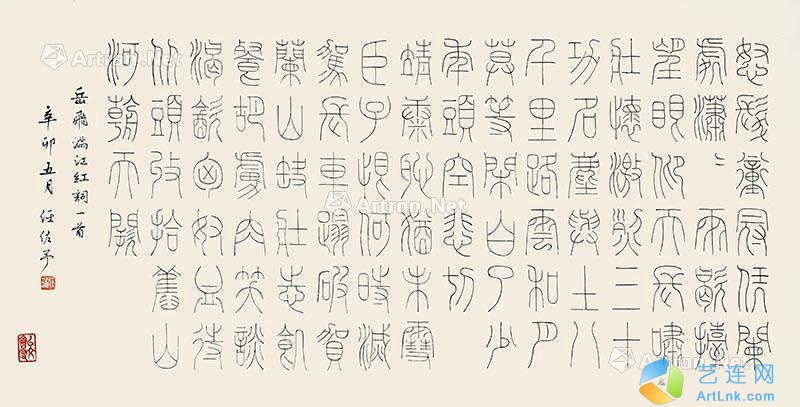 怒髮衝冠憑闌
處瀟〻雨歇擡
望眼仰天長嘯
壯懷激烈三十
功名塵與土八
千里路雲和月
莫等閑白了少
年頭空悲切
靖康恥猶未雪
臣子恨何時滅
駕長車踏破賀
蘭山缺壯志飢
餐胡虜肉笑談
渴飲匈奴血待
從頭收拾舊山
河朝天闕
岳飛滿江紅詞一首
辛卯五月 任佐予
Artron.Net
艺连网
ArtLnk.com